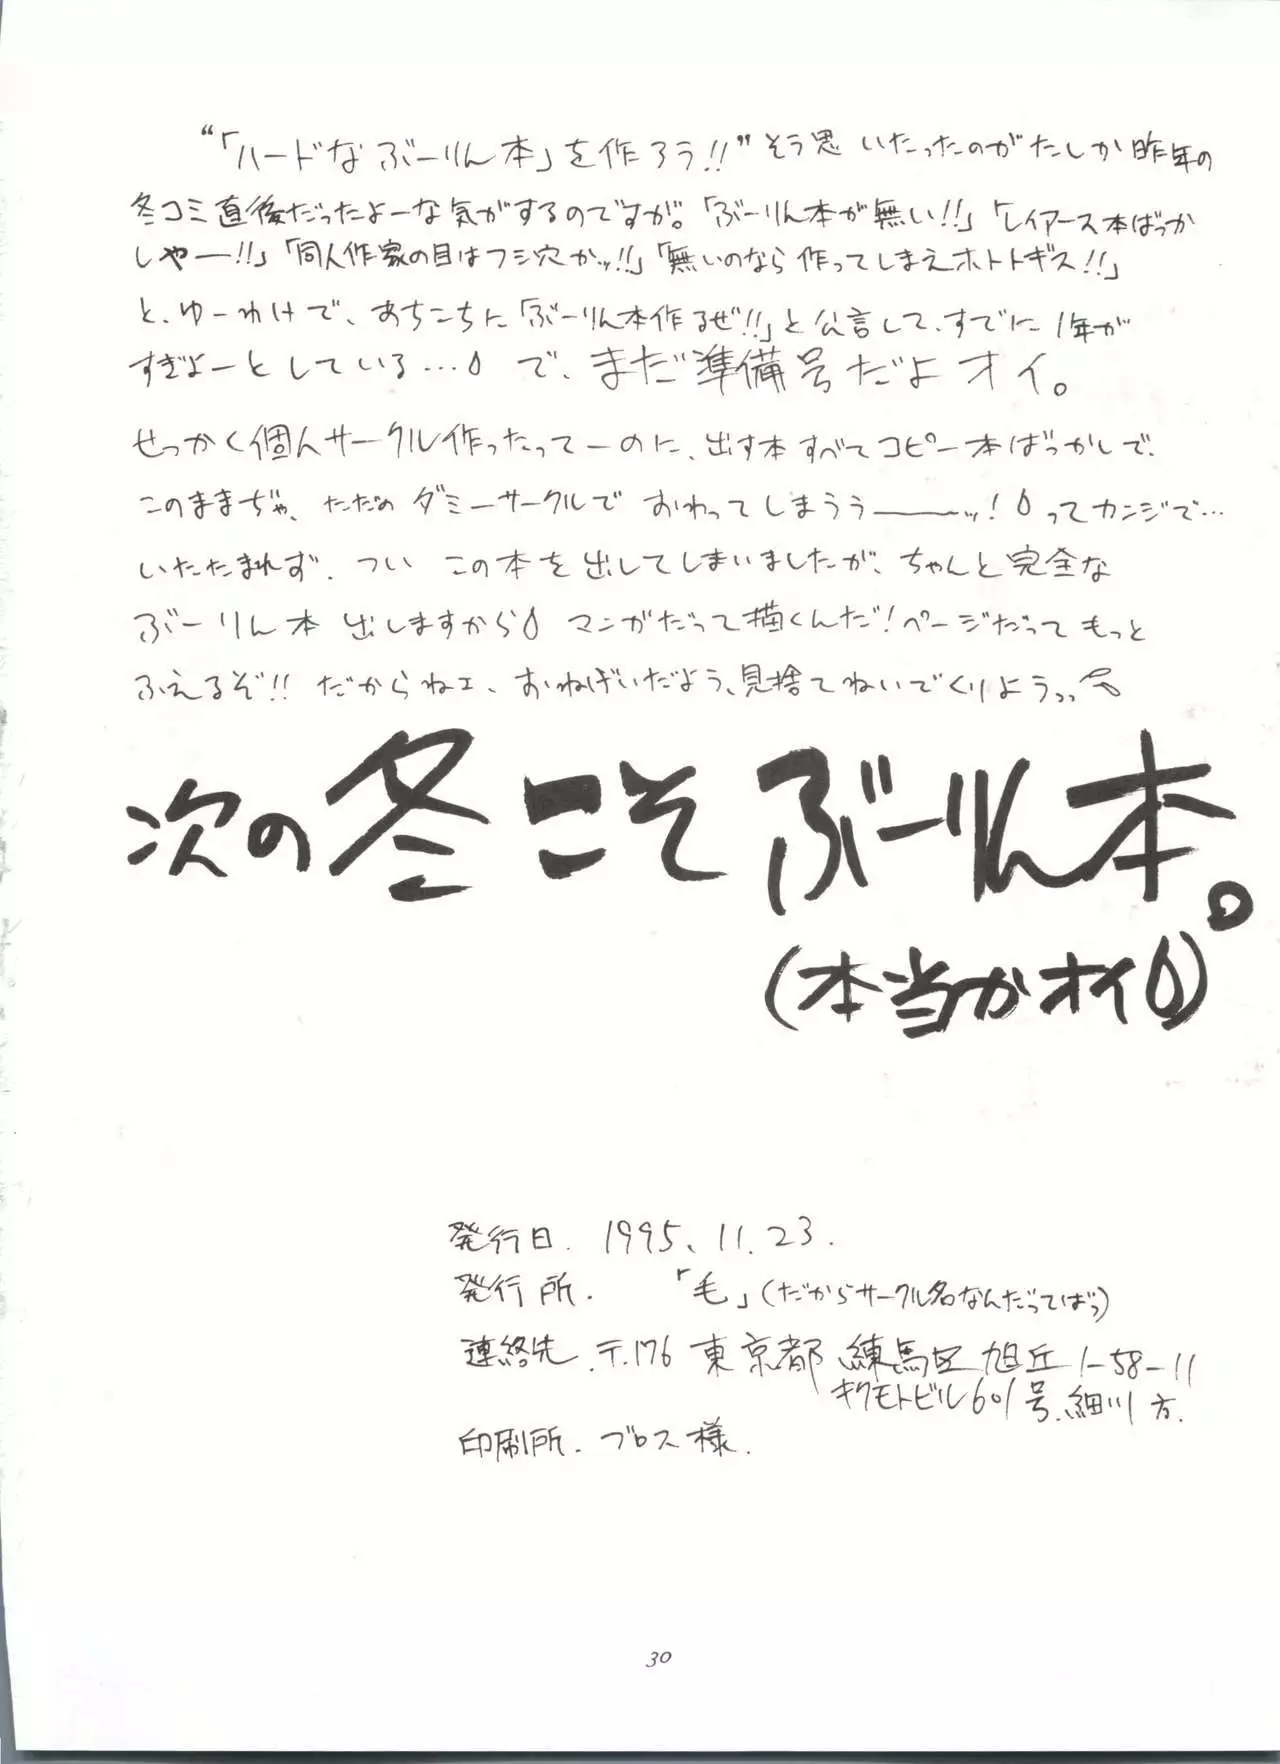 “「ハードなぶーりん本」を作ろう!!”そう思いたったのがたしか昨年の
冬コミ直後だったよーな気がするのですが。「ぶーりん本が無い!!」「レイアース本ばっか
しやー!!」「同人作家の目はフシ穴かッ!!」「無いのなら作ってしまえホトトギス!!」
と、ゆーわけで、あちこちに「ぶーりん本作るぜ!!」と公言して、すでに1年が
すぎよーとしている… で、まだ準備号だよオイ。
せっかく個人サークル作ったってーのに、出す本すべてコピー本ばっかしで、
このままぢゃ、ただのダミーサークルでおわってしまうぅ――ッ!ってカンジで…
いたたまれず、ついこの本を出してしまいましたが、ちゃんと完全な
ぶーりん本出しますから マンガだって描くんだ!ページだってもっと
ふえるぞ!! だからねェ、おねげいだよう、見捨てねいでくりようっっ
次の冬こそぶーりん本。
(本当かオイ)
発行日. 1995.11.23.
発行所. 「毛」(だからサークル名なんだってばっ)
連絡先.〒176 東京都練馬区旭丘1-58-11
キクモトビル601号.細川方.
印刷所. ブロス様.
30